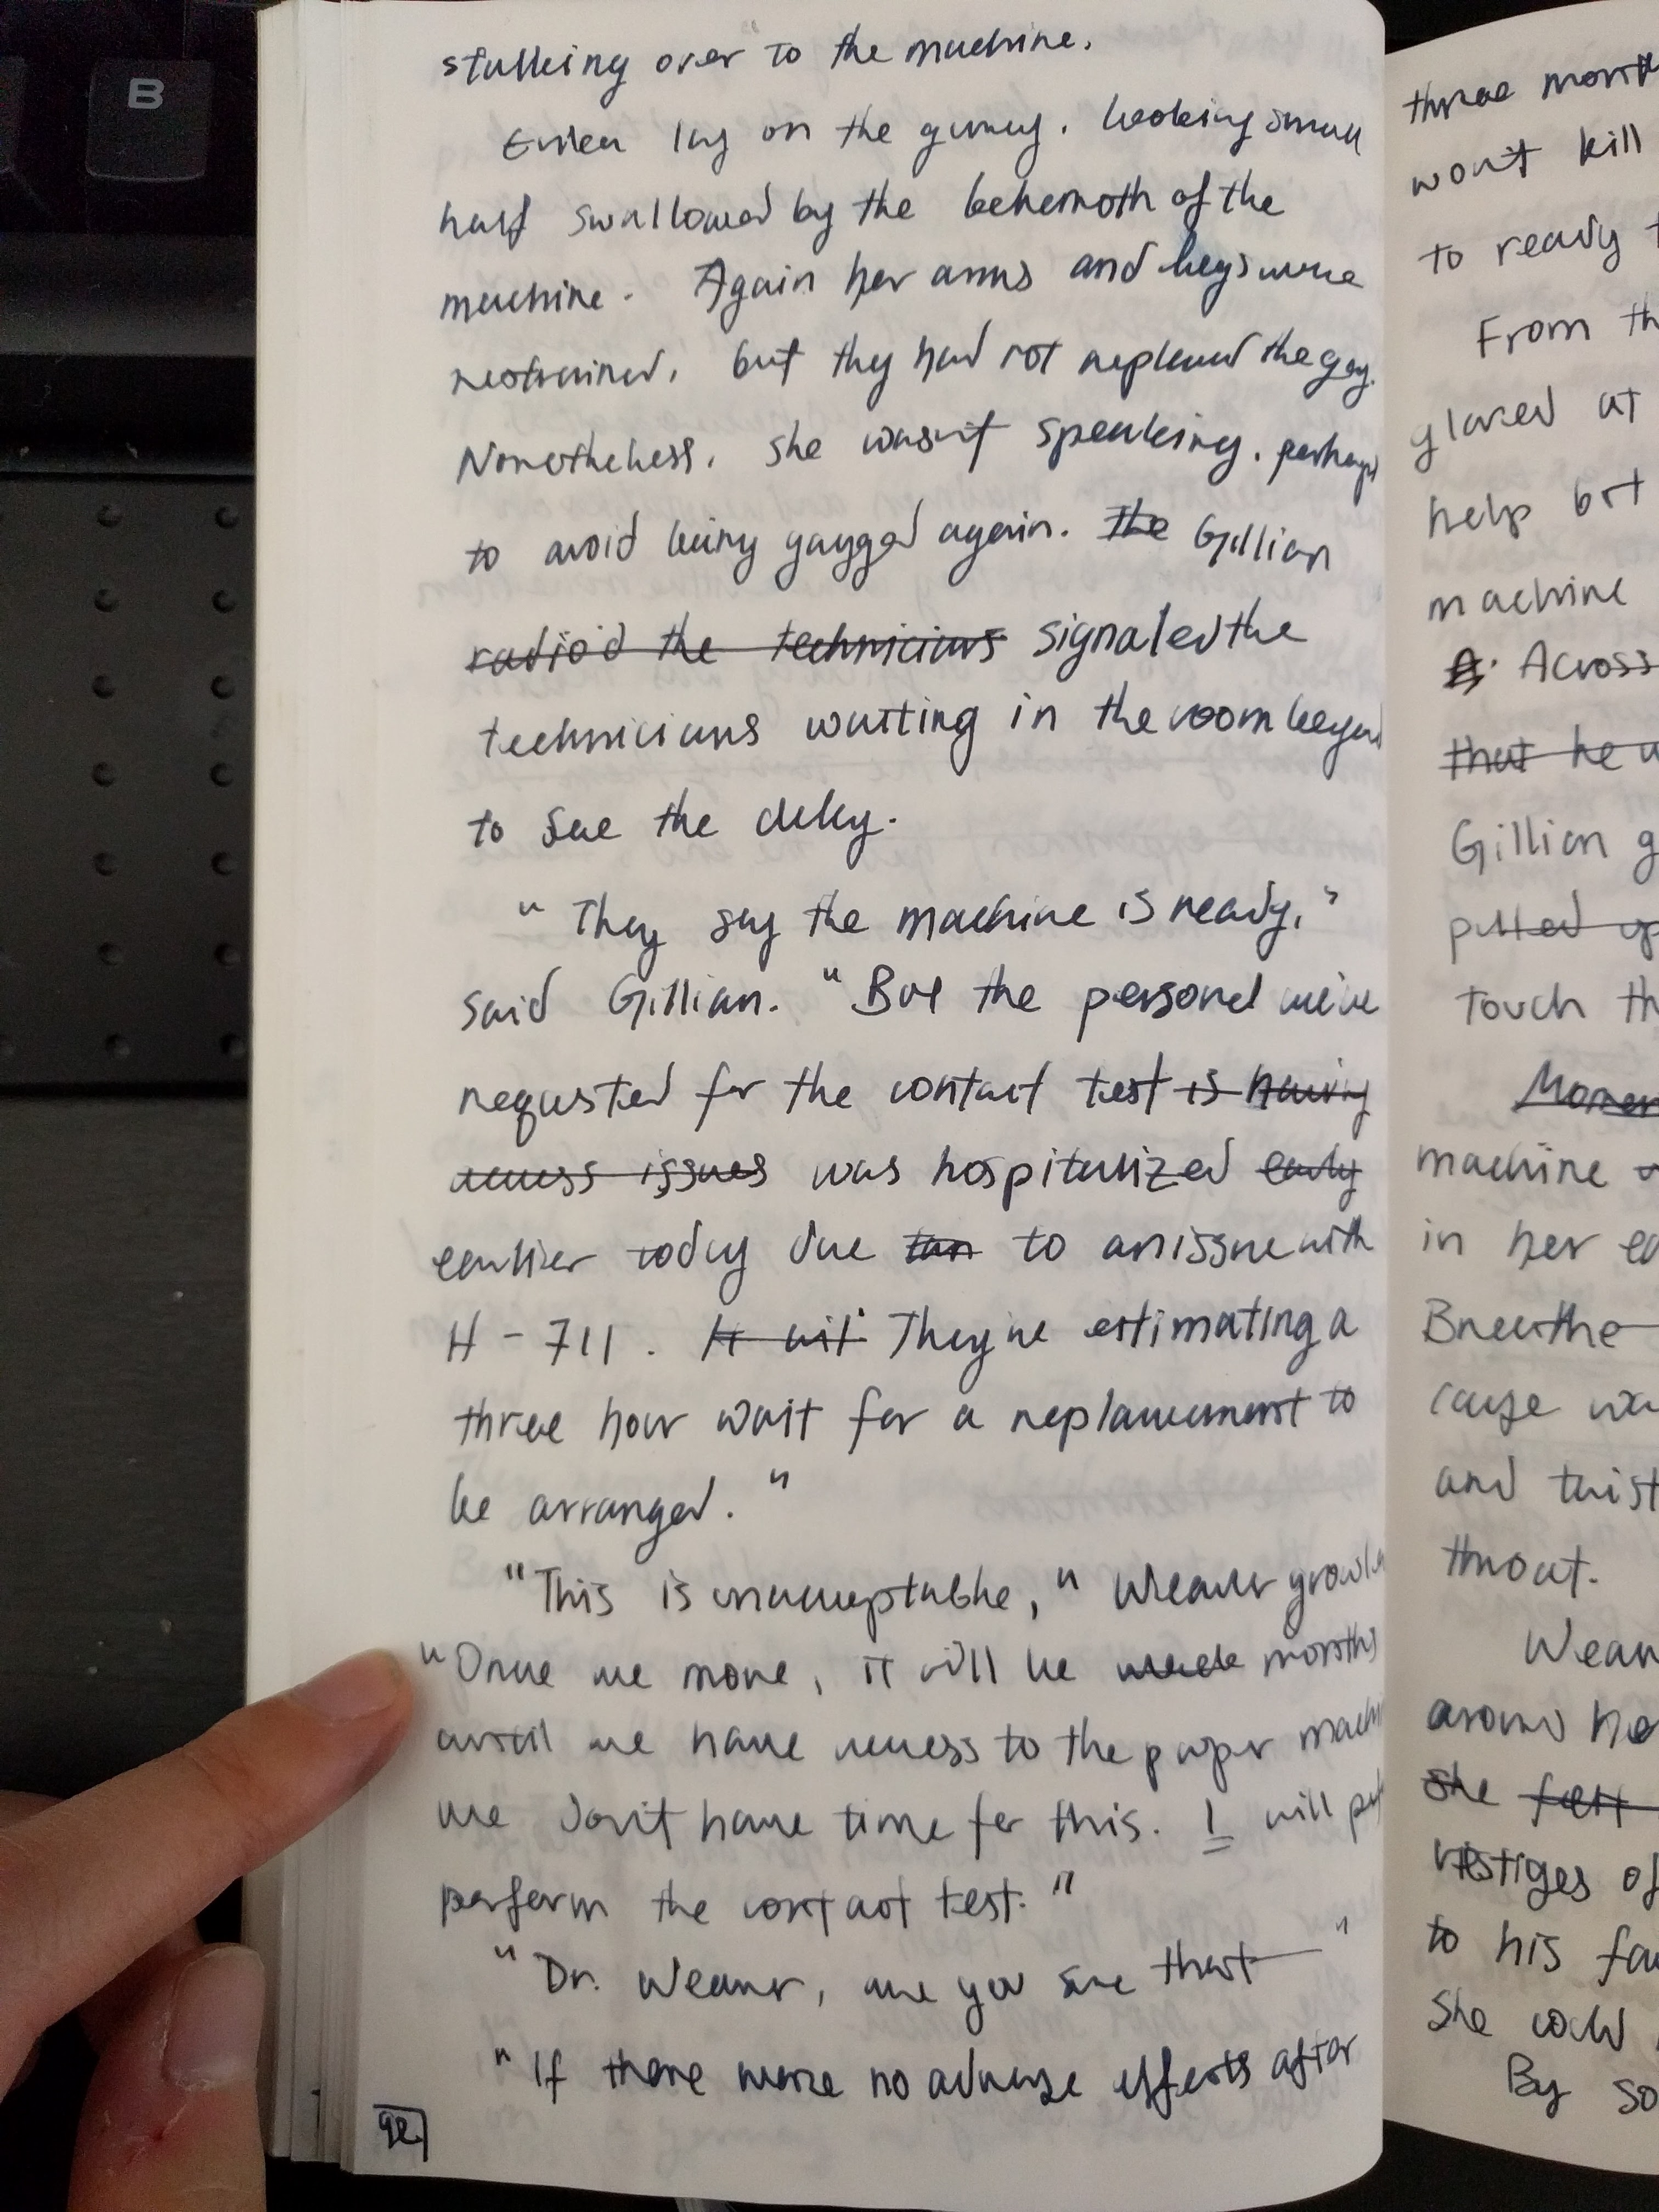 B
stalking over to the machine.
lay on the gurney, looking small
half swallowed by the behemoth of the
machine. Again her arms and legs were
restrained, but they had not replaced the gag.
Nonetheless, she wasn't speaking, perhaps
to avoid being gagged again. The Gillian
radio'd the technicians signaled the
technicians waiting in the room beyond
to see the delay.
"They say the machine is ready,"
said Gillian. "But the personel we've
requested for the contact test is having
access issues was hospitalized early
earlier today due to an issue with
H-711. They're estimating a
three hour wait for a replacement to
be arranged."
"This is unacceptable," Weaver growled
"Once we move, it will be months
until we have access to the proper mach
we don't have time for this. I will
perform the contact test."
"Dr. Weaver, are you sure that—"
"If there were no adverse effects after
92
three month
won't kill
to ready t
From th
glared at
help but
machine
Across
that he w
Gillian g
pulled up
touch th
Momen
machine
in her ea
Breathe
cage
and twist
throat.
Weav
around he
she felt
vestiges of
to his fa
she could
By so